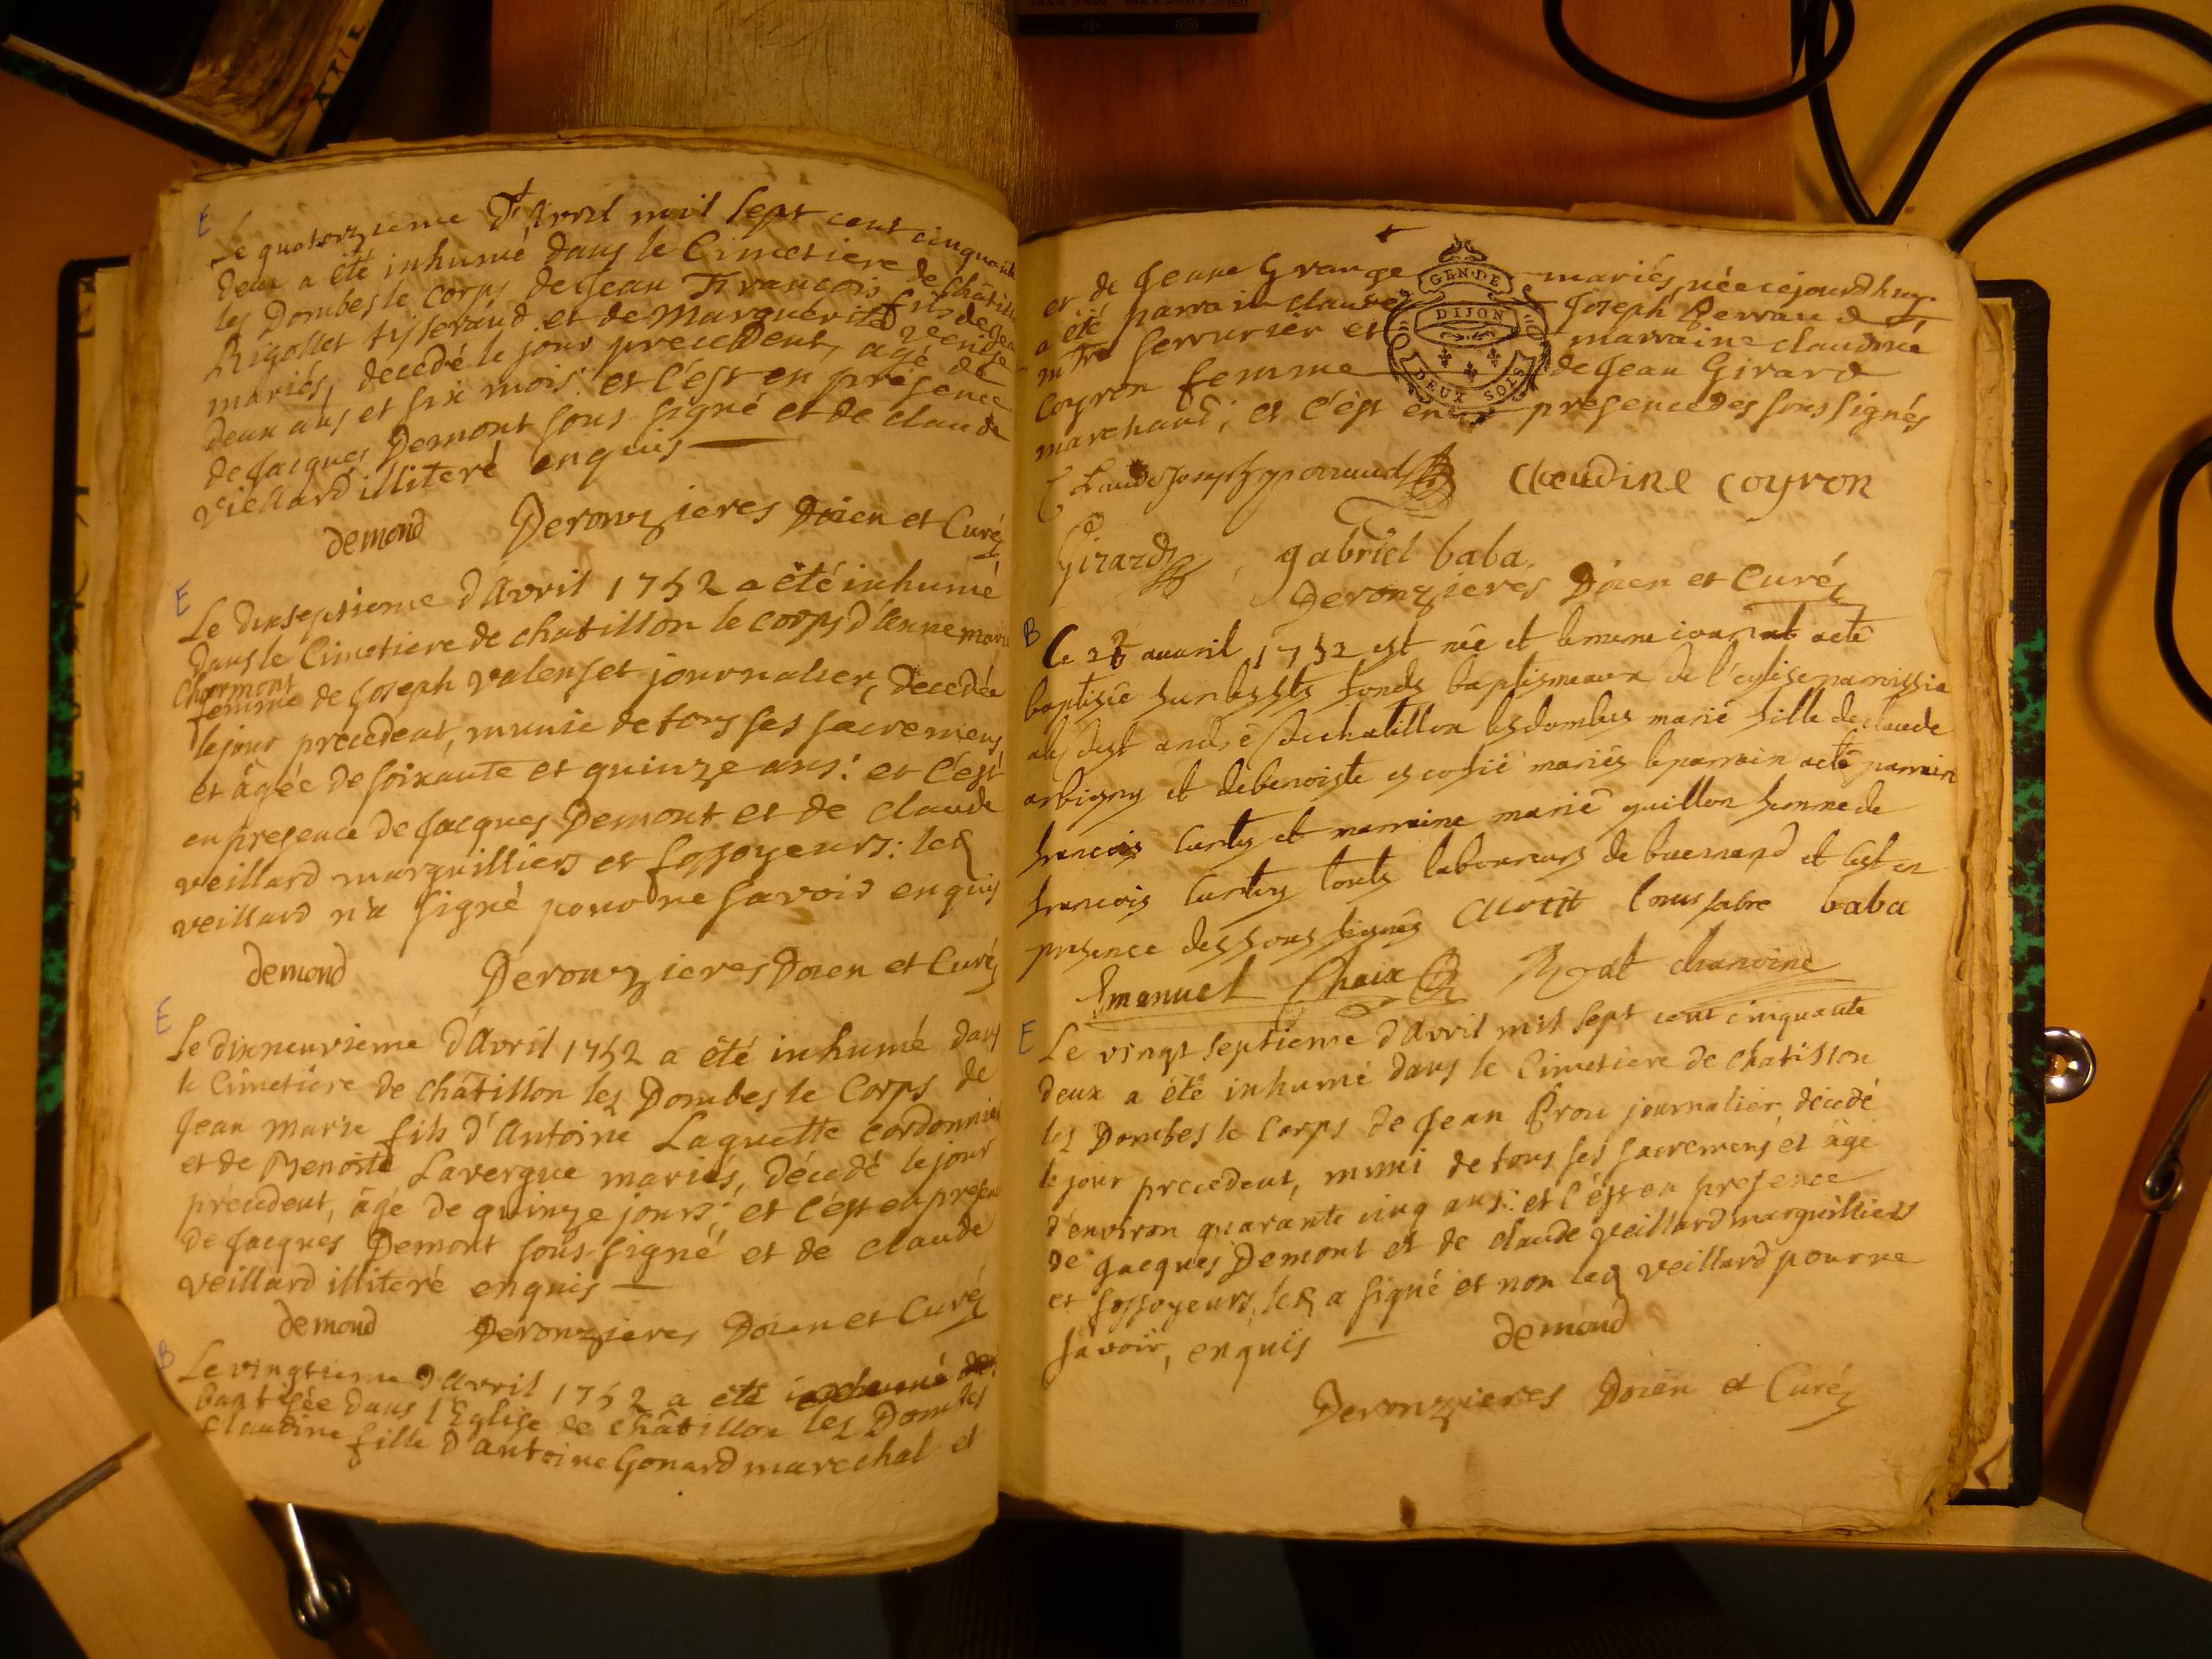 E
Le quatorzieme d'Avril mil sept cent cinquante
deux a été inhumé dans le Cimetiere de châtillon
les Dombes le corps de Jean François fils de Jean
Rigollet tisserand et de Marguerite
mariés, decedé le jour precedent, agé de
deux ans et six mois: et c'est en presence
de Jacques Demont sous signé et de claude
Viellard illiteré enquis
demond Deronzieres Doien et Curé
E
Le dixseptieme d'Avril 1752 a été inhumé
dans le Cimetiere de chatillon le corps d'
Charmont
femme de Joseph Valenset journalier, decedée
le jour precedent, munie de tous ses sacremens,
et âgée de soixante et quinze ans: et c'est
en presence de Jacques Demont et de claude
veillard marguilliers et fossoyeurs: led
veillard n'a signé pour ne savoir enquis
demond Deronzieres Doien et Curé
E
Le dixneuvieme d'Avril 1752 a été inhumé dans
le Cimetiere de châtillon les Dombes le Corps de
Jean marie fils d'Antoine Laguette cordonnier
et de Benoite Lavergne mariés, décédé le jour
précedent, âgé de quinze jours; et c'est en presence
de Jacques Demont sous-signé et de claude
veillard illiteré enquis
demond Deronzieres Doien et Curé
B
Le vingtieme d'Avril 1752 a été
baptisée dans l'Eglise de châtillon les Dombes
Claudine fille d'antoine Gonard marechal et
et de Jeanne Grange mariés, née cejourdhuy.
a été parrain claude Joseph Perraud
mtre serrurier et marraine claudine
Coyron femme de Jean Girard
marchand; et c'est en presence des sous signés
GEN. DE
DIJON
DEUX SOLS
Claude Joseph perraud Claudine coyron
Girard gabriel baba
Deronzieres Doien et Curé
B
Ce auuril 1752 est née et le meme iour acté
baptisée sur les sts fonds baptismeaux de l'eglise paroissia
ale dest andré de chatillon les dombes marie fille de claude
arbigny et de benoiste mariés le parrain acté parrain
francois curtis et marraine marie guillon femme de
francois touts laboureurs de et cest en
presence des sous signés baba
Emanuel Chaix chanoine
E
Le vingt septieme d'Avril mil sept cent cinquante
deux a été inhumé dans le Cimetiere de chatillon
les Dombes le Corps de Jean Brou journalier, décedé
le jour precedent, muni de tous ses sacremens et âgé
d'environ quarante cinq ans: et c'est en presence
de Jacques Demont et de claude veillard marguilliers
et fossoyeurs, led a signé et non led veillard pour ne
savoir, enquis demond
Deronzieres Doien et Curé